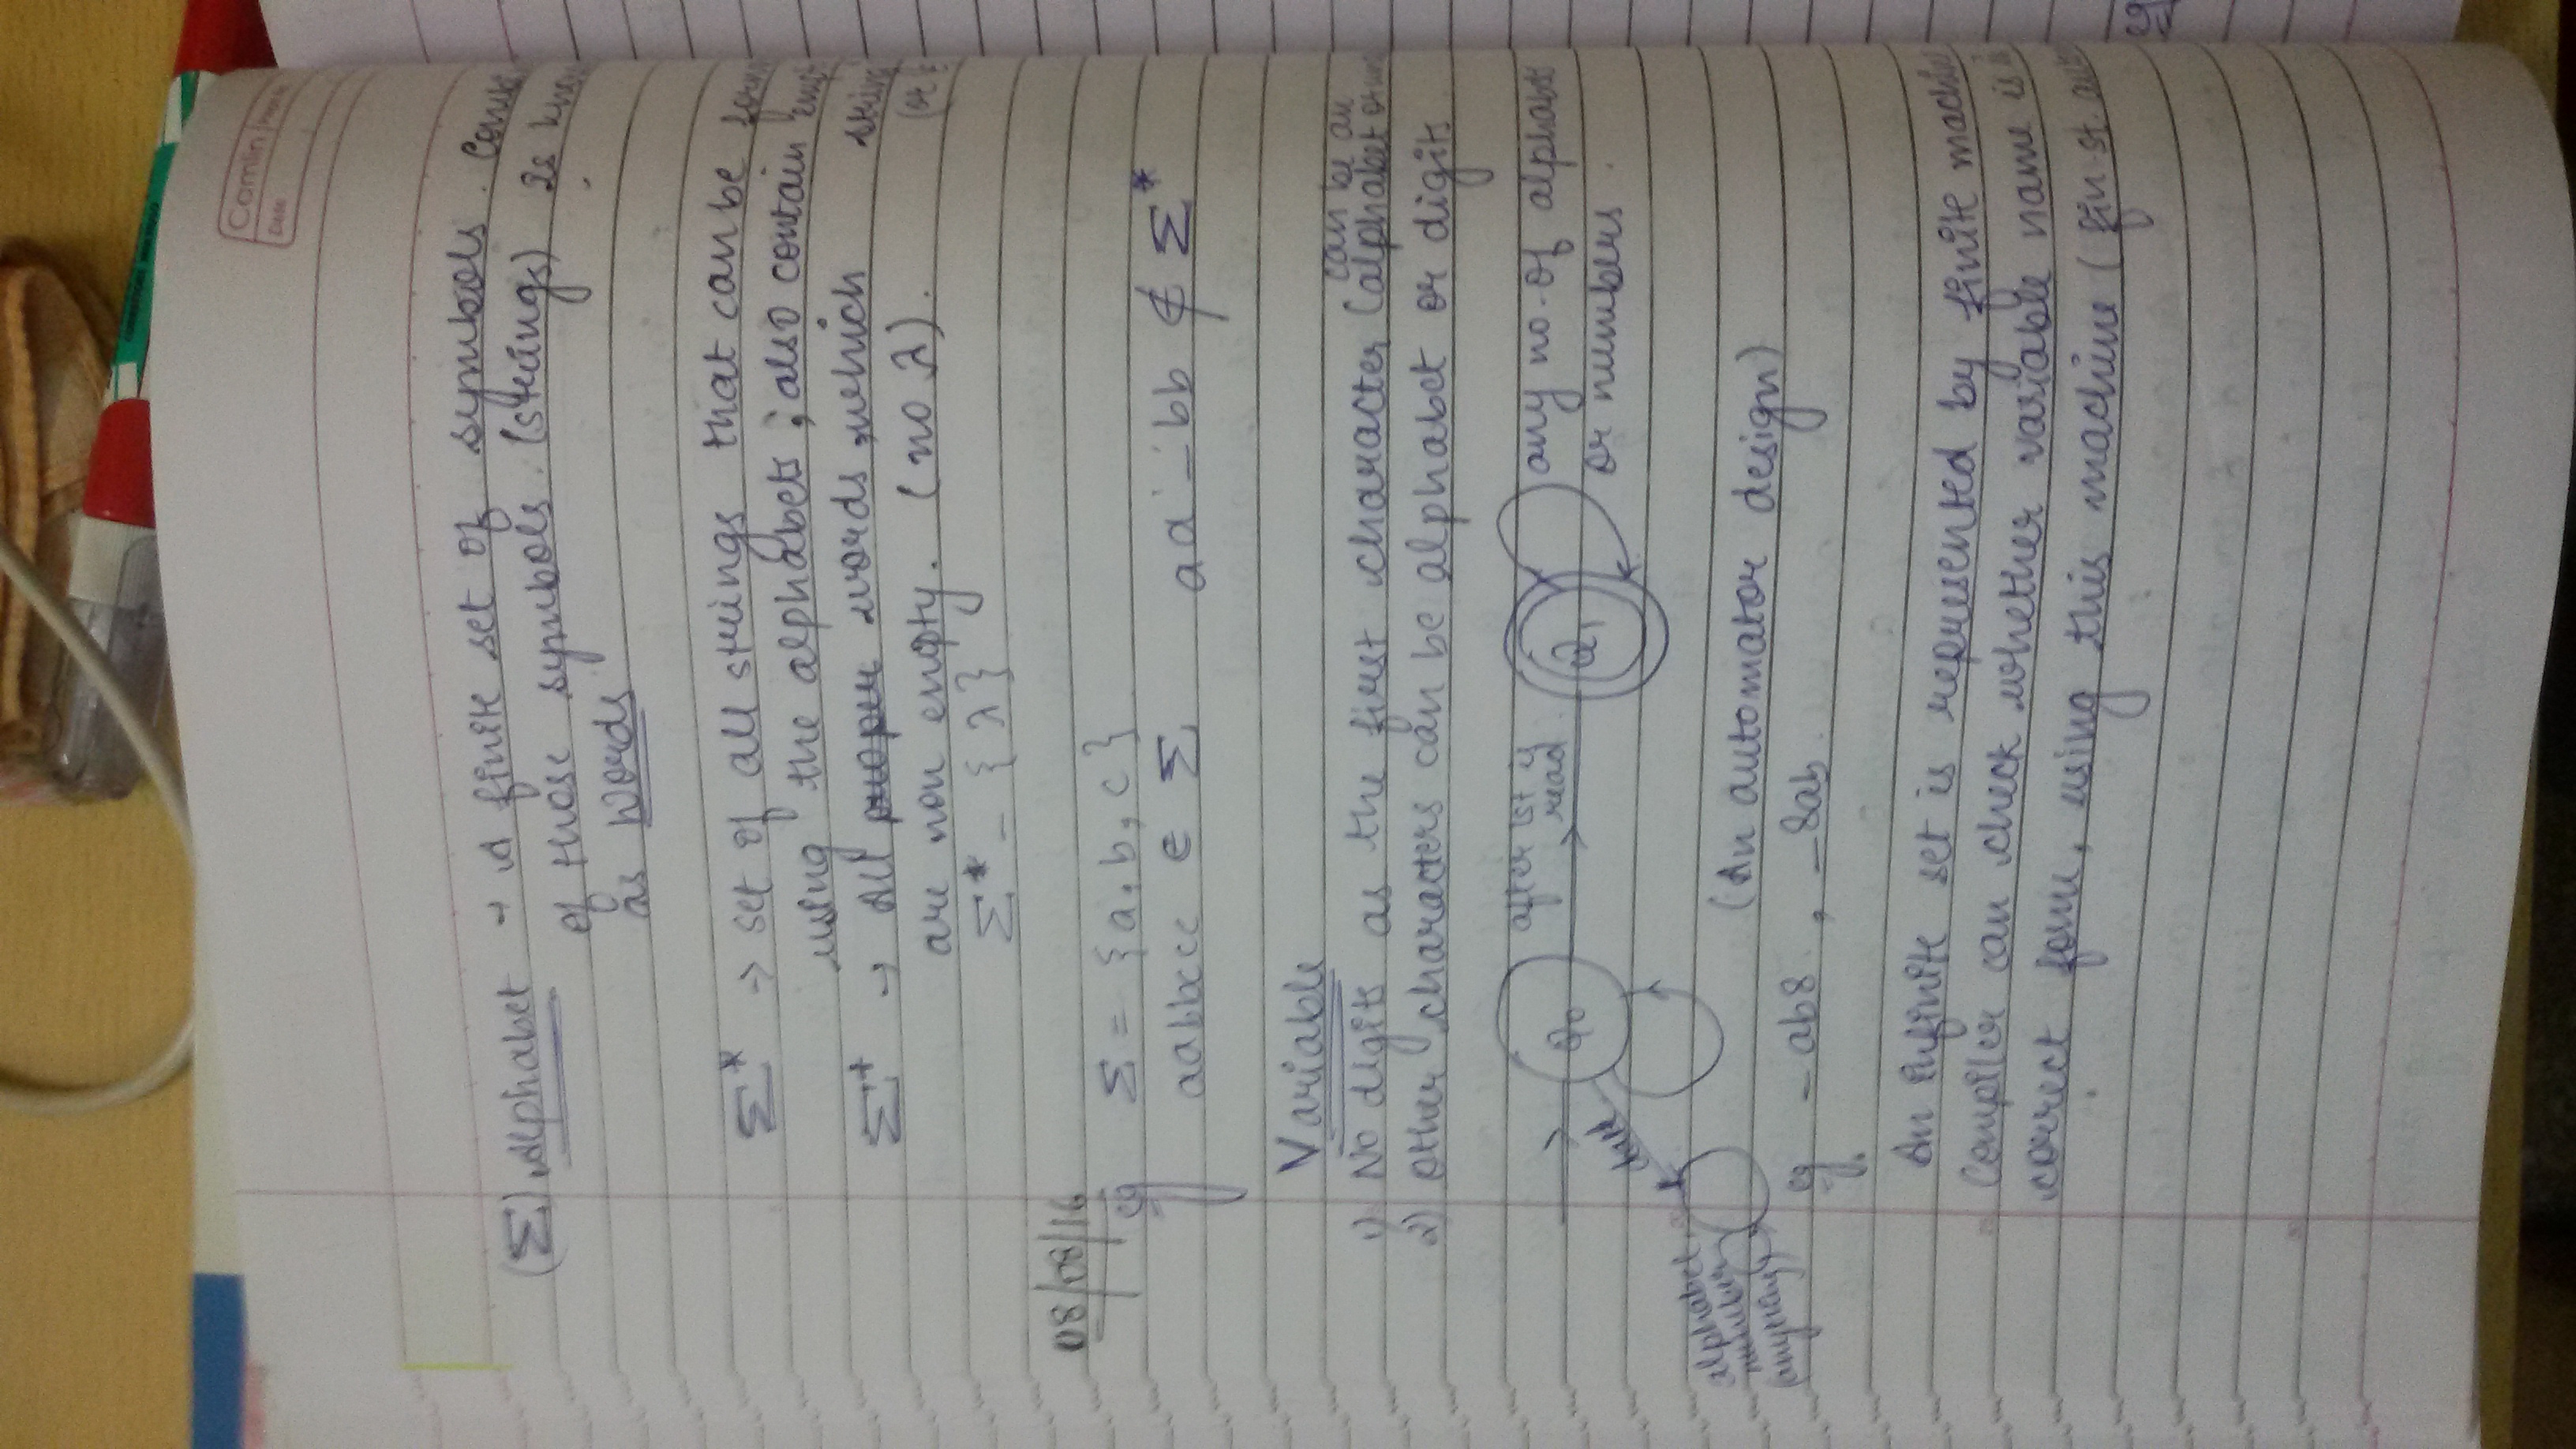 Camlin
Date
(Σ) Alphabet → A finite set of symbols.
of those symbols. (strings) Is
as Words
Σ* → set of all strings that can be
using the alphabets ; also contain
Σ+ → All words, which
are non empty. (no λ).
Σ* - { λ }
08/08/16
eg Σ = {a, b, c}
aabbccc ∈ Σ aa _bb ∉ Σ*
Variable
can be an
1) No digits as the first character (alphabet or
2) Other characters can be alphabet or digits
after 1st is
read
Q0
Q1
any no. of alphabets
or numbers.
alphabet,
number
(An automator design)
eg _ab8 , _8ab.
An infinite set is represented by finite
Compiler can check whether variable name is
correct form, using this machine (fin. st.
eg